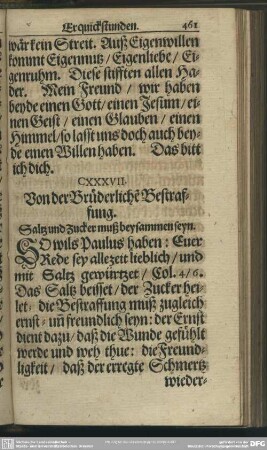 Erquickstunden. 461
wär kein Streit. Auß Eigenwillen
kommt Eigennutz / Eigenliebe / Ei-
genruhm. Diese stifften allen Ha-
der. Mein Freund / wir haben
beyde einen Gott / einen Jesum / ei-
nen Geist / einen Glauben / einen
Himmel / so lasst uns doch auch bey-
de einen Willen haben. Das bitt
ich dich.
CXXXVII.
Von der Brüderlichẽ Bestraf-
fung.
Saltz und Zucker muß beysammen seyn.
SO wils Paulus haben: Euer
Rede sey allezeit lieblich / und
mit Saltz gewürtzet / Col. 4/6.
Das Saltz beisset / der Zucker hei-
let: die Bestraffung muß zugleich
ernst- uñ freundlich seyn: der Ernst
dient dazu / daß die Wunde gefühlt
werde und weh thue: die Freund-
ligkeit / daß der erregte Schmertz
wieder-